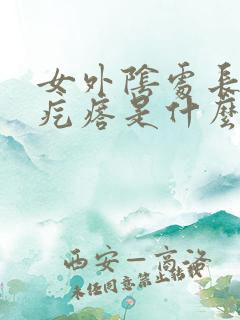 女外陰處長
疙瘩是什麼
西安一高洛
未经同意禁止转载